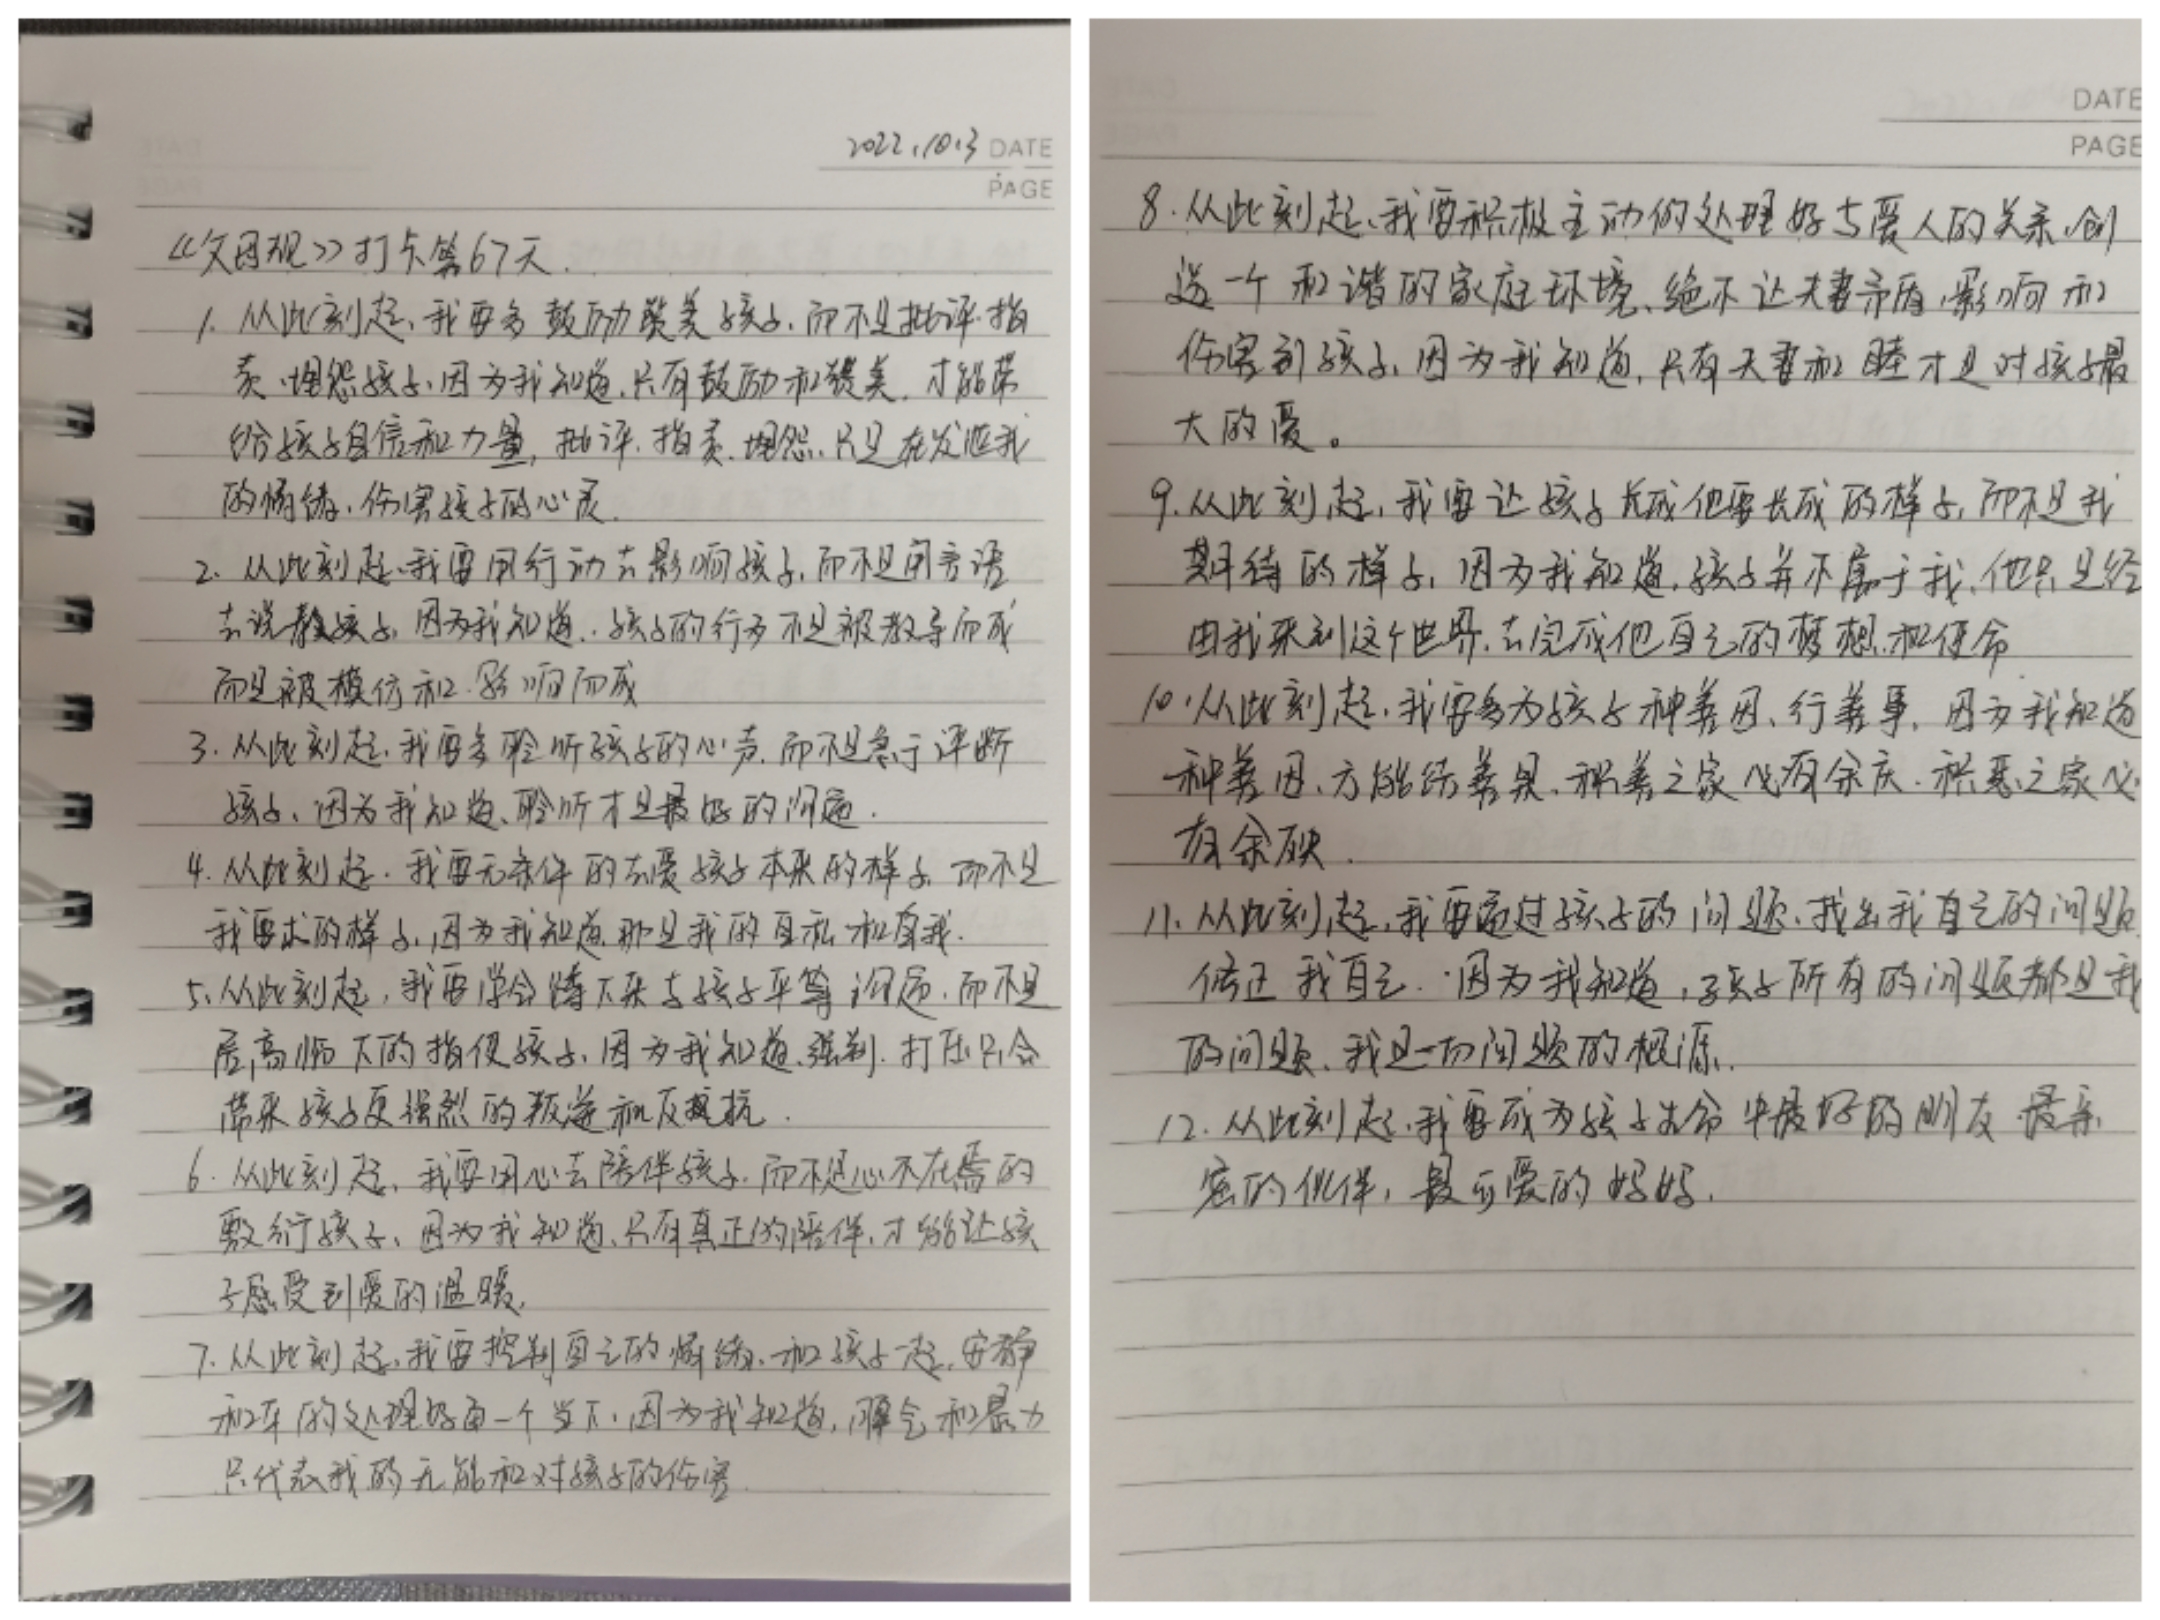 2022.10.3 DATE
PAGE
《父母规》打卡第67天.
1. 从此刻起、我要多鼓励赞美孩子、而不是批评.指
责、埋怨孩子、因为我知道、只有鼓励和赞美、才能带
给孩子自信和力量，批评.指责.埋怨、只是在发泄我
的情绪、伤害孩子的心灵.
2. 从此刻起、我要用行动去影响孩子、而不是用言语
去说教孩子、因为我知道、孩子的行为不是被教导而成
而是被模仿和影响而成
3. 从此刻起、我要多聆听孩子的心声、而不是急于评断
孩子、因为我知道、聆听才是最好的沟通.
4. 从此刻起、我要无条件的去爱孩子本来的样子、而不是
我要求的样子、因为我知道、那是我的自私和自我.
5. 从此刻起，我要学会蹲下来与孩子平等沟通、而不是
居高临下的指使孩子、因为我知道、强制.打压只会
带来孩子更强烈的叛逆和反抗.
6. 从此刻起、我要用心去陪伴孩子、而不是心不在焉的
敷衍孩子、因为我知道、只有真正的陪伴、才能让孩
子感受到爱的温暖.
7. 从此刻起、我要控制自己的情绪、和孩子一起、安静
和平的处理好每一个当下、因为我知道，脾气和暴力
只代表我的无能和对孩子的伤害.
DATE
PAGE
8. 从此刻起、我要积极主动的处理好与爱人的关系、创
造一个和谐的家庭环境、绝不让夫妻矛盾、影响和
伤害到孩子、因为我知道、只有夫妻和睦才是对孩子最
大的爱。
9. 从此刻起、我要让孩子长成他要长成的样子、而不是我
期待的样子、因为我知道、孩子并不属于我、他只是经
由我来到这个世界、去完成他自己的梦想和使命
10. 从此刻起、我要多为孩子种善因、行善事、因为我知道
种善因、方能结善果、积善之家必有余庆、积恶之家必
有余殃.
11. 从此刻起、我要通过孩子的问题、找出我自己的问题
修正我自己、因为我知道，孩子所有的问题都是我
的问题、我是一切问题的根源.
12. 从此刻起、我要成为孩子生命中最好的朋友、最亲
密的伙伴，最可爱的妈妈.